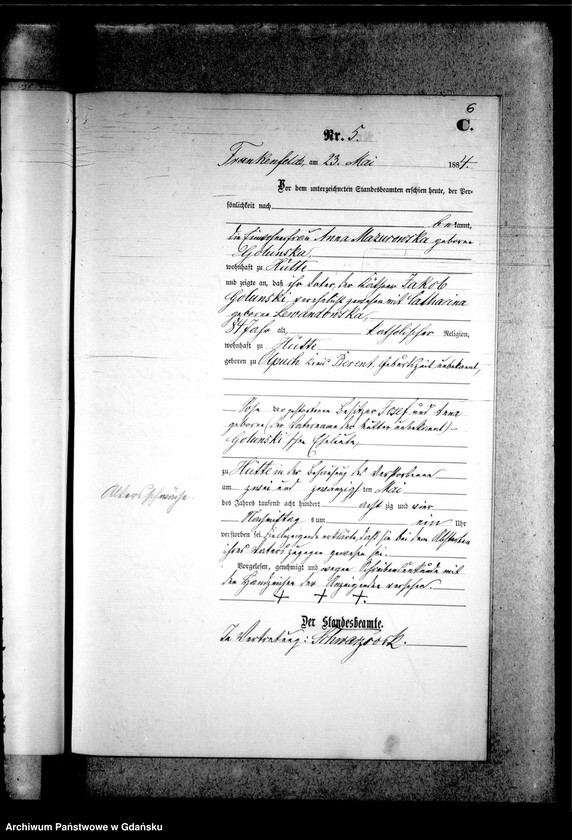 6
C.
Nr. 5.
Frankenfelde, am 23. Mai 1884.
Vor dem unterzeichneten Standesbeamten erschien heute, der Per-
sönlichkeit nach
bekannt,
die Einwohnerfrau Anna Mazurowska geborene
Golunska,
wohnhaft zu Hütte
und zeigte an, daß ihr Vater, der Käthner Jakob
Golunski, verehelicht gewesen mit Catharina
geborene Lewandowska,
84 Jahr alt, katholischer Religion,
wohnhaft zu Hütte
geboren zu Olpuch Kreis Berent, Geburtszeit unbekannt,
Sohn der gestorbenen Besitzer Josef und
geborene (der Vatername der Mutter unbekannt) –
Golunski'schen Eheleute,
zu Hütte in der Behausung des Verstorbenen
am zwei und zwanzigsten Mai
des Jahres tausend acht hundert acht zig und vier
Nachmittags um ein Uhr
verstorben sei. Die Anzeigende erklärte, daß sie bei dem Absterben
ihres Vaters zugegen gewesen sei.
Vorgelesen, genehmigt und wegen Schreibensunkunde mit
den Handzeichen der Anzeigenden versehen.
+ + +
Altersschwäche.
Der Standesbeamte.
In Vertretung:
Archiwum Państwowe w Gdańsku